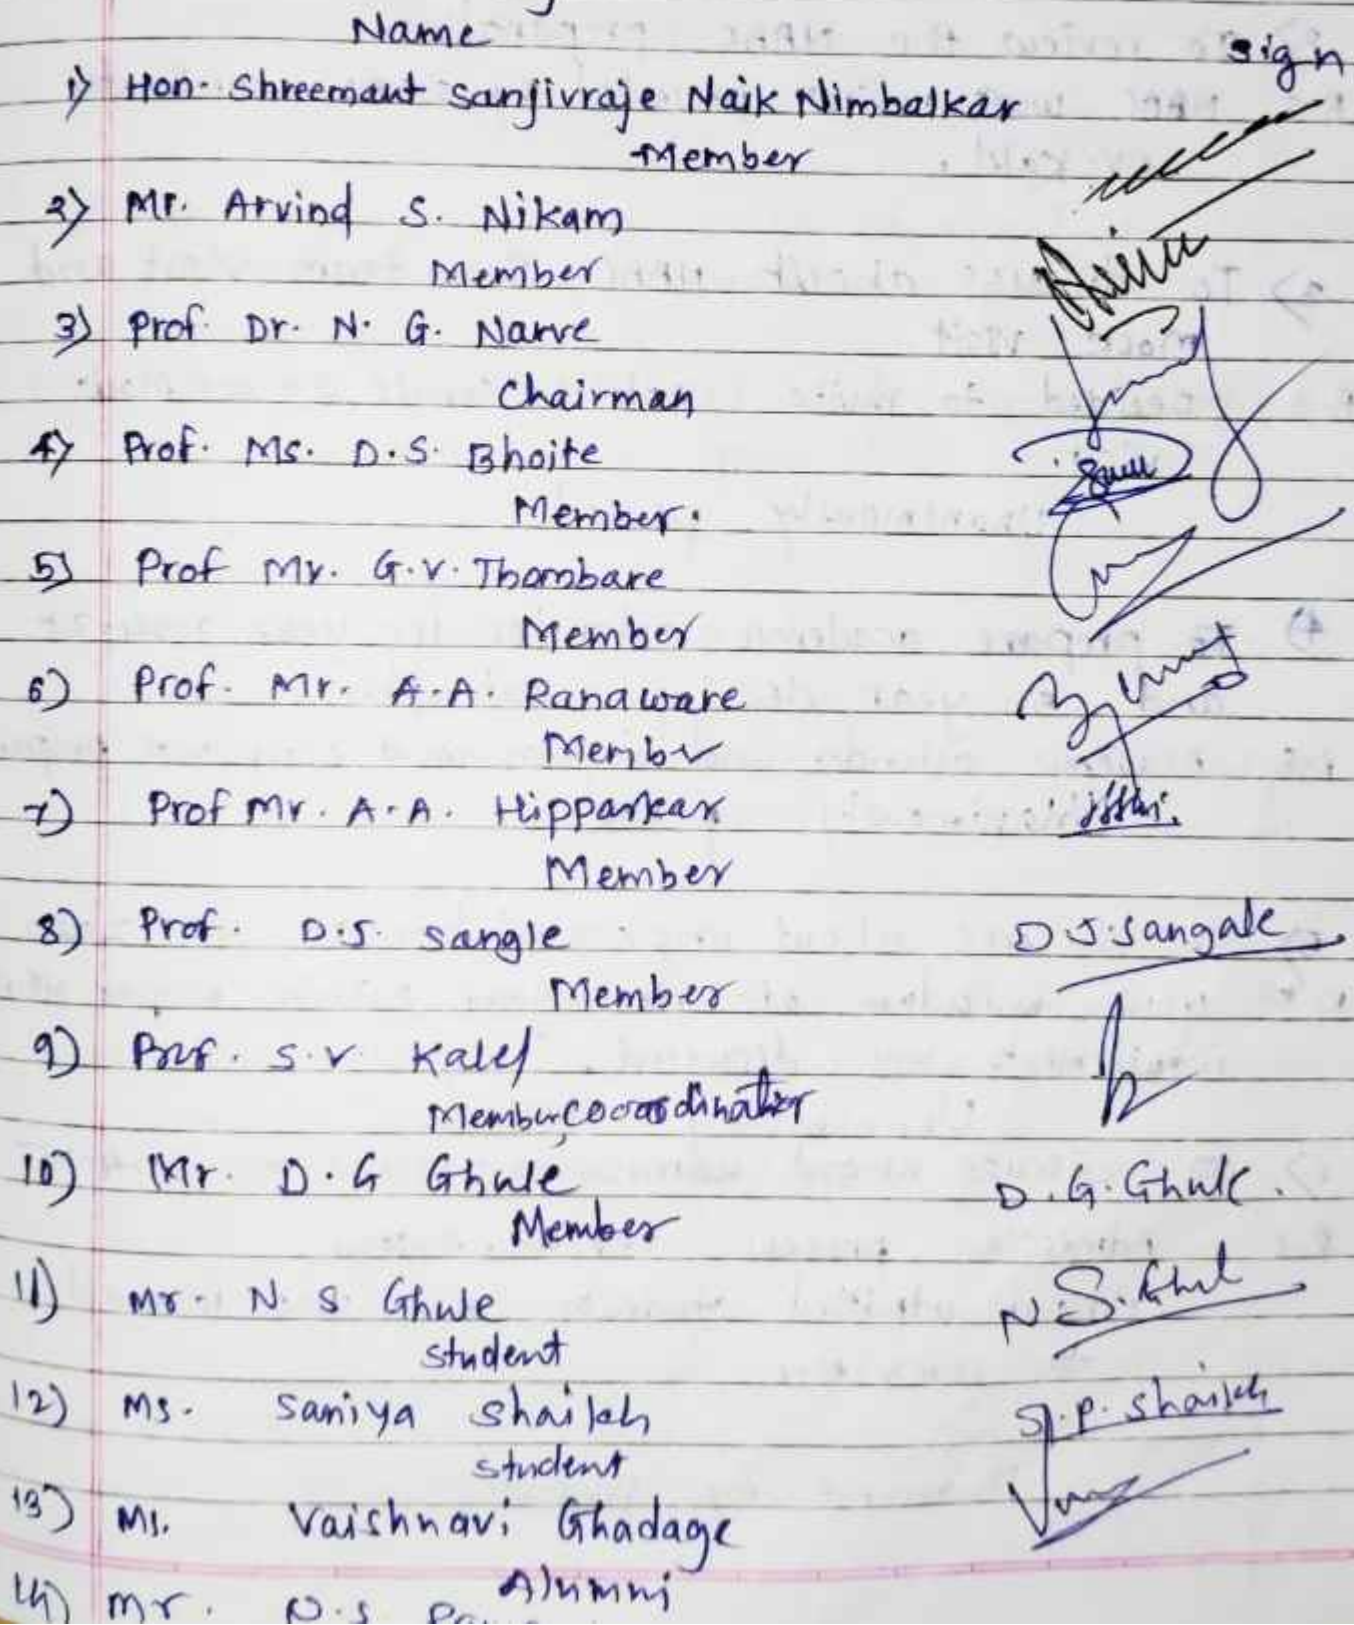 Name sign
1) Hon. Shreemant Sanjivraje Naik Nimbalkar
Member
2) Mr. Arvind S. Nikam
Member
3) Prof. Dr. N. G. Narve
Chairman
4) Prof. Ms. D.S. Bhoite
Member.
5) Prof Mr. G.V. Thombare
Member
6) Prof. Mr. A.A. Ranaware
Member
7) Prof Mr. A.A. Hipparkar
Member
8) Prof. D.S. Sangle D S. Sangale
Member
9) Prof. S.V. Kale
Member, coordinator
10) Mr. D.G Ghule D.G. Ghule.
Member
11) Mr. N. S Ghule N S. Ghul
student
12) Ms. Saniya Shaikh S.P. Shaikh
student
13) Ms. Vaishnavi Ghadage
Alumni
14) Mr. N.S